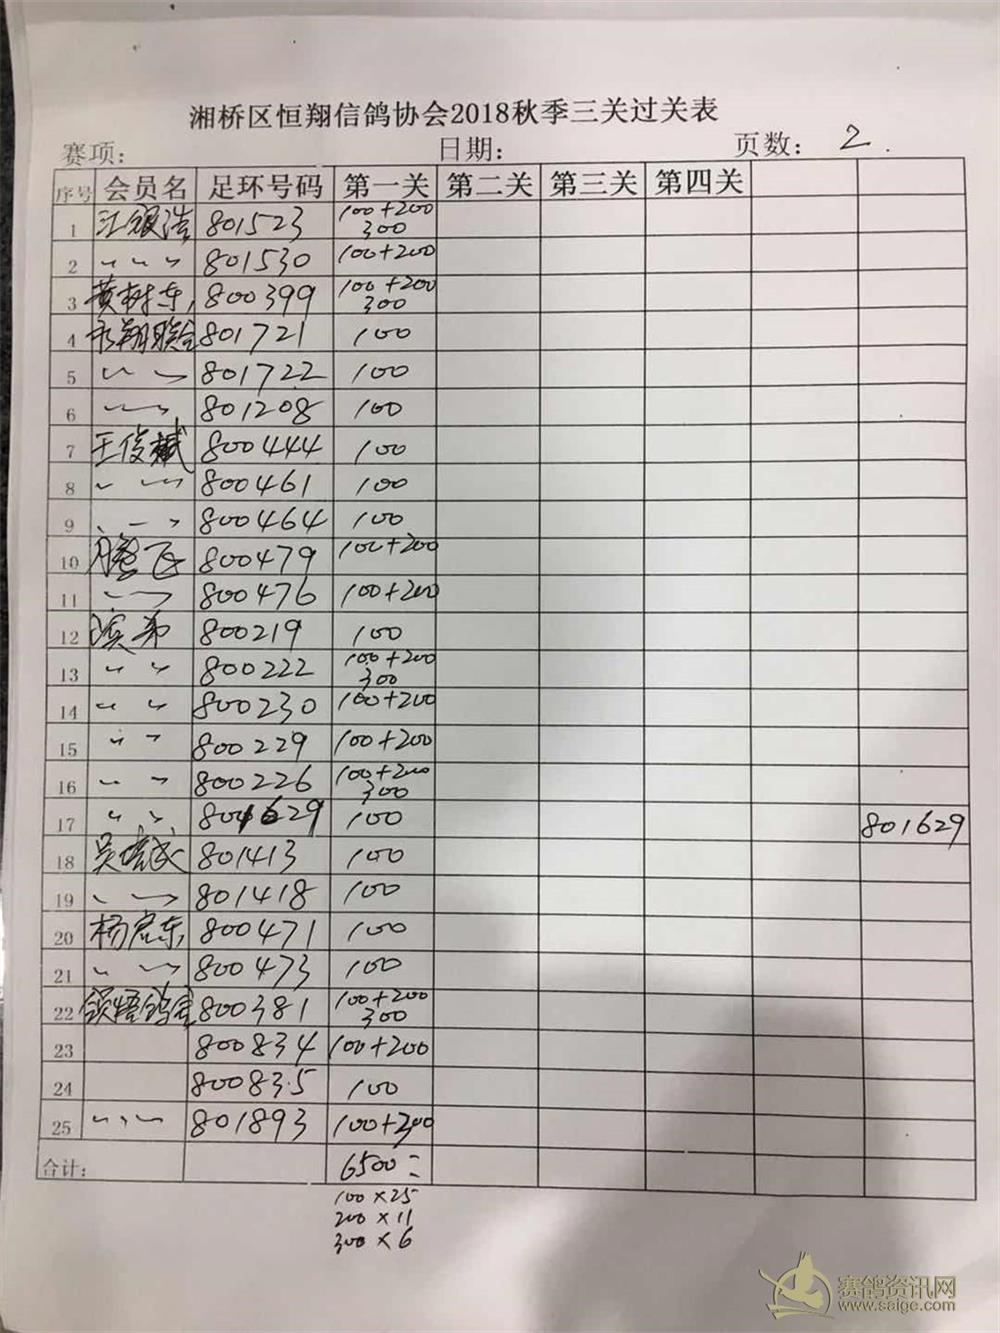 湘桥区恒翔信鸽协会2018秋季三关过关表
赛项： 日期： 页数： 2.
序号 会员名 足环号码 第一关 第二关 第三关 第四关
1 江银浩 801523 100+200 300
2 〃 〃 〃 801530 100+200
3 黄树东 800399 100+200 300
4 永翔联合 801721 100
5 〃 〃 801722 100
6 〃 801208 100
7 王俊斌 800444 100
8 〃 〃 800461 100
9 〃 800464 100
10 腾飞 800479 100+200
11 〃 800476 100+200
12 滨弟 800219 100
13 〃 〃 800222 100+200 300
14 〃 〃 800230 100+200
15 〃 〃 800229 100+200
16 〃 〃 800226 100+200 300
17 〃 〃 801629 100 801629
18 吴 801413 100
19 〃 〃 801418 100
20 杨 东 800471 100
21 〃 〃 800473 100
22 领悟鸽舍 800381 100+200 300
23 800834 100+200
24 800835 100
25 〃 〃 801893 100+200
合计： 6500=
100×25
200×11
300×6
赛鸽资讯网
www.saige.com